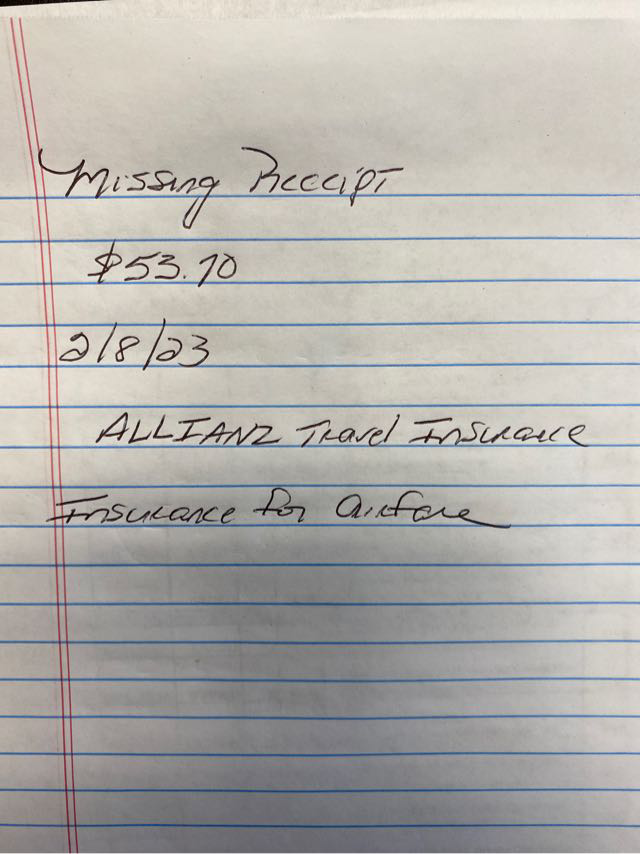 Missing Receipt
$53.70
2/8/23
ALLIANZ Travel Insurance
Insurance for airfare